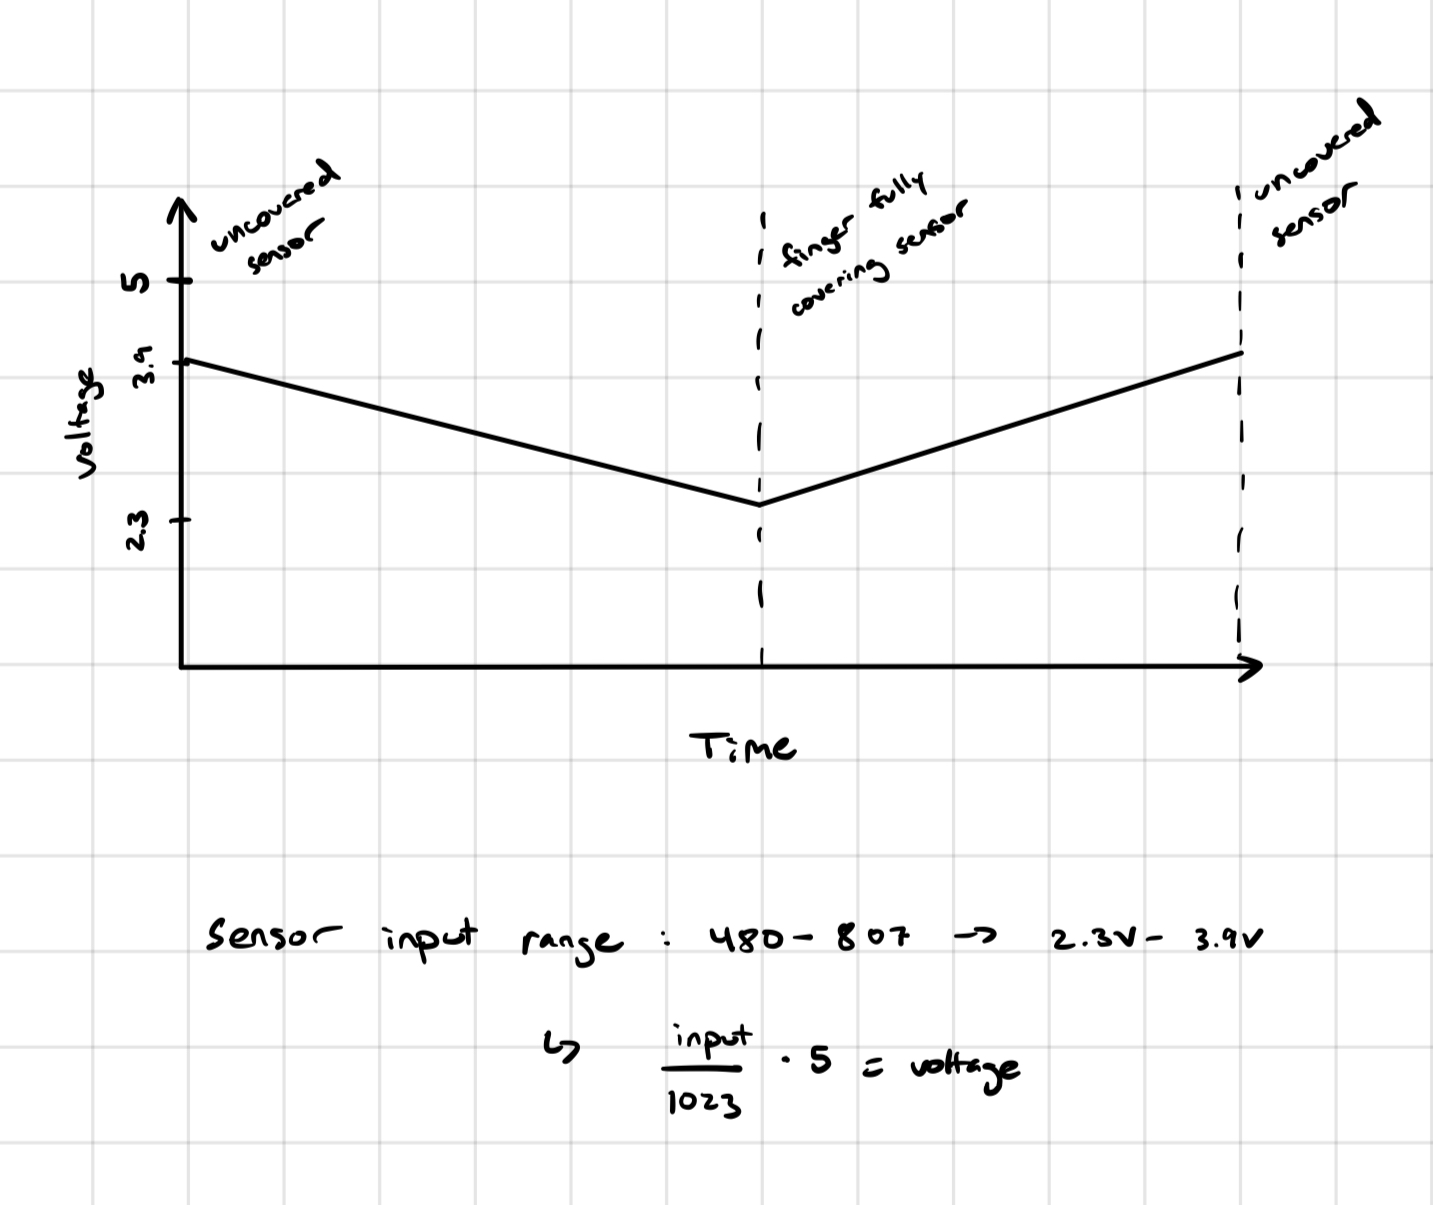 uncovered
sensor
finger fully
covering sensor
uncovered
sensor
5
3.9
2.3
voltage
Time
Sensor input range : 480 - 807 → 2.3V - 3.9V
↳ input
1023
· 5 = voltage